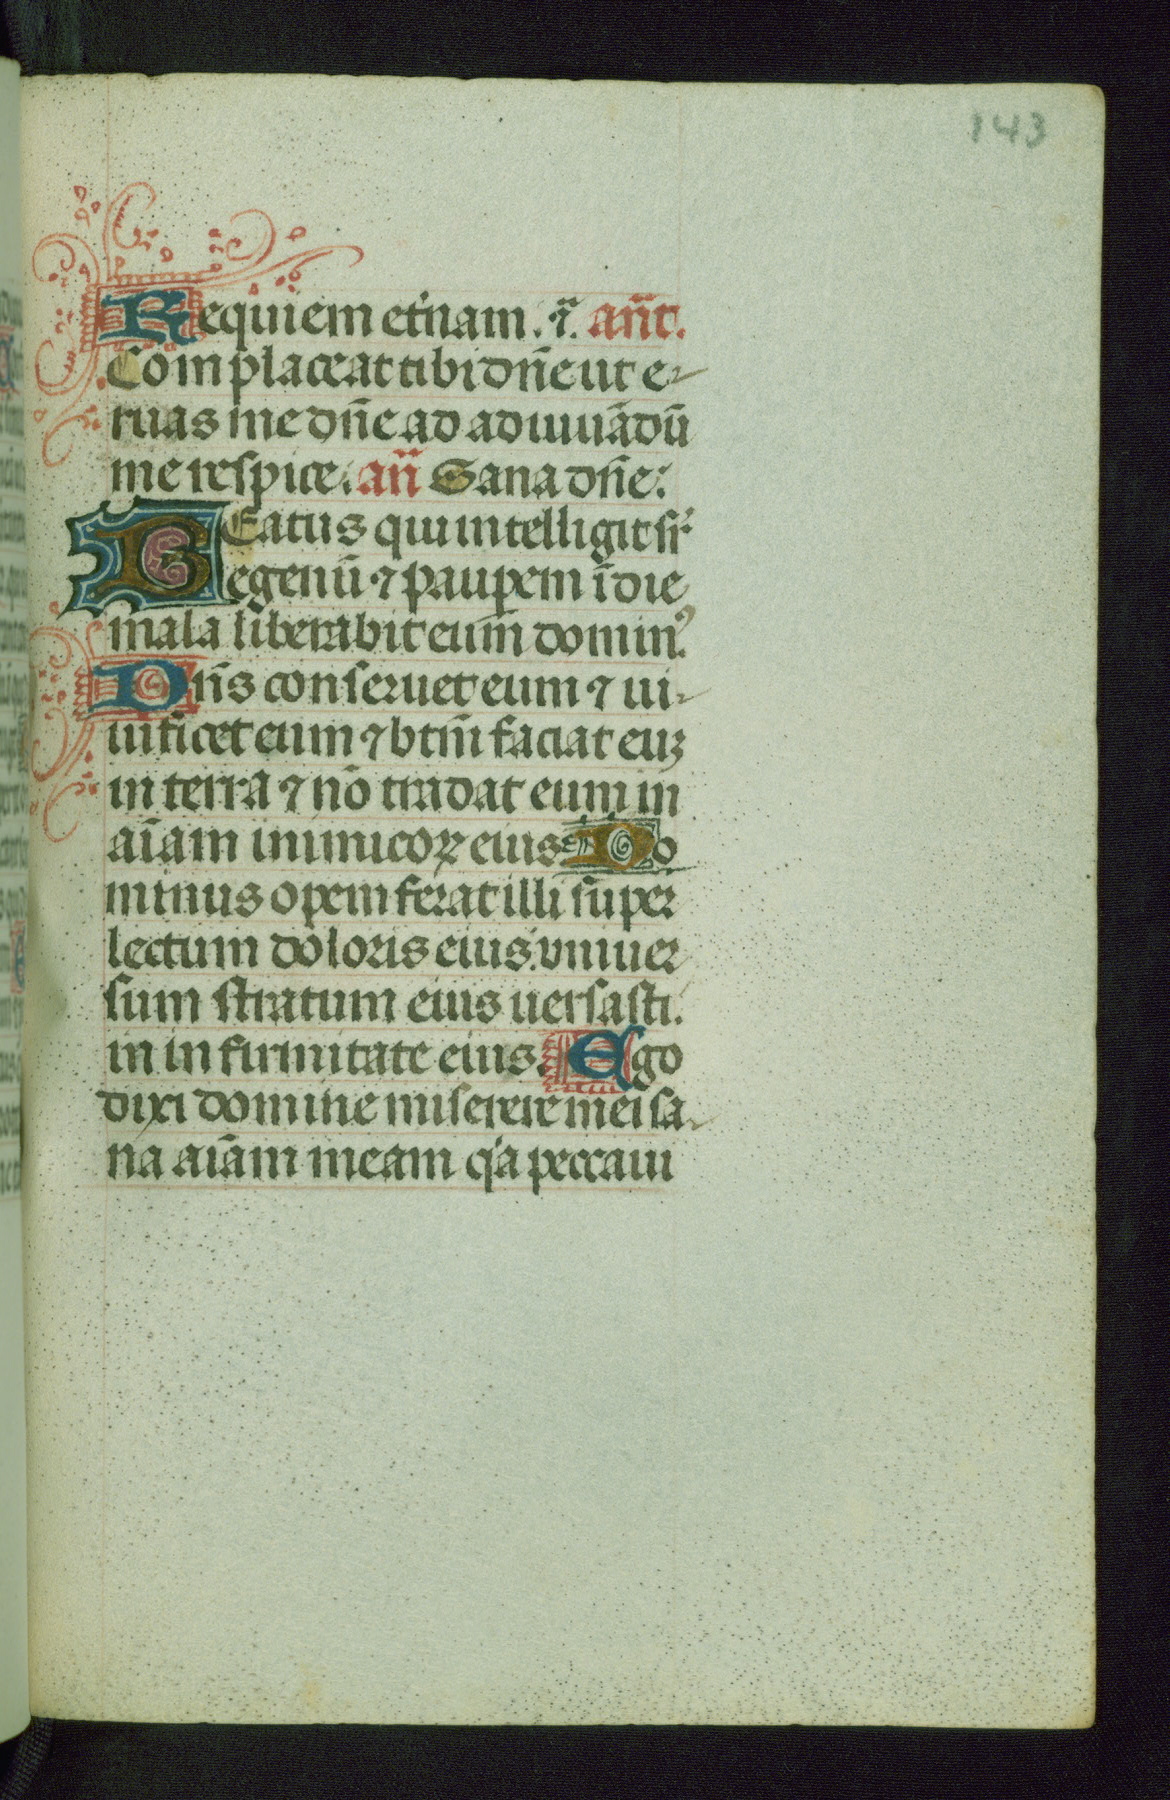 143
Requiem et'nam. ⁊c̄. an̄t.
Complaceat tibi dn̄e ut e-
ruas me dn̄e ad adiuuādū
me respice. an̄ Sana dn̄e:
BEatus qui intelligit sr̄
egenū ⁊ pauꝑem ī die
mala liberabit eum dominꝰ
Dn̄s conseruet eum ⁊ ui-
uificet eum ⁊ btm̄ faciat euꝫ
in terra ⁊ nō tradat eum in
aīam inimicoꝝ eius Do
minus opem ferat illi super
lectum doloris eius: vniuer
sum stratum eius uersasti.
in infirmitate eius. Ego
dixi domine miserere mei sa-
na aīam meam q'a peccaui